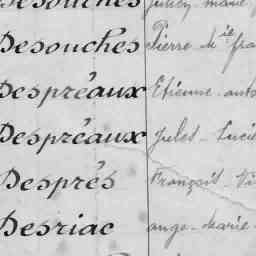 Desouches
Desouches Pierre Mie fra
Despréaux Etienne-anto
Despréaux Jules-Lucie
Després François-Vi
Desriac ange-Marie-